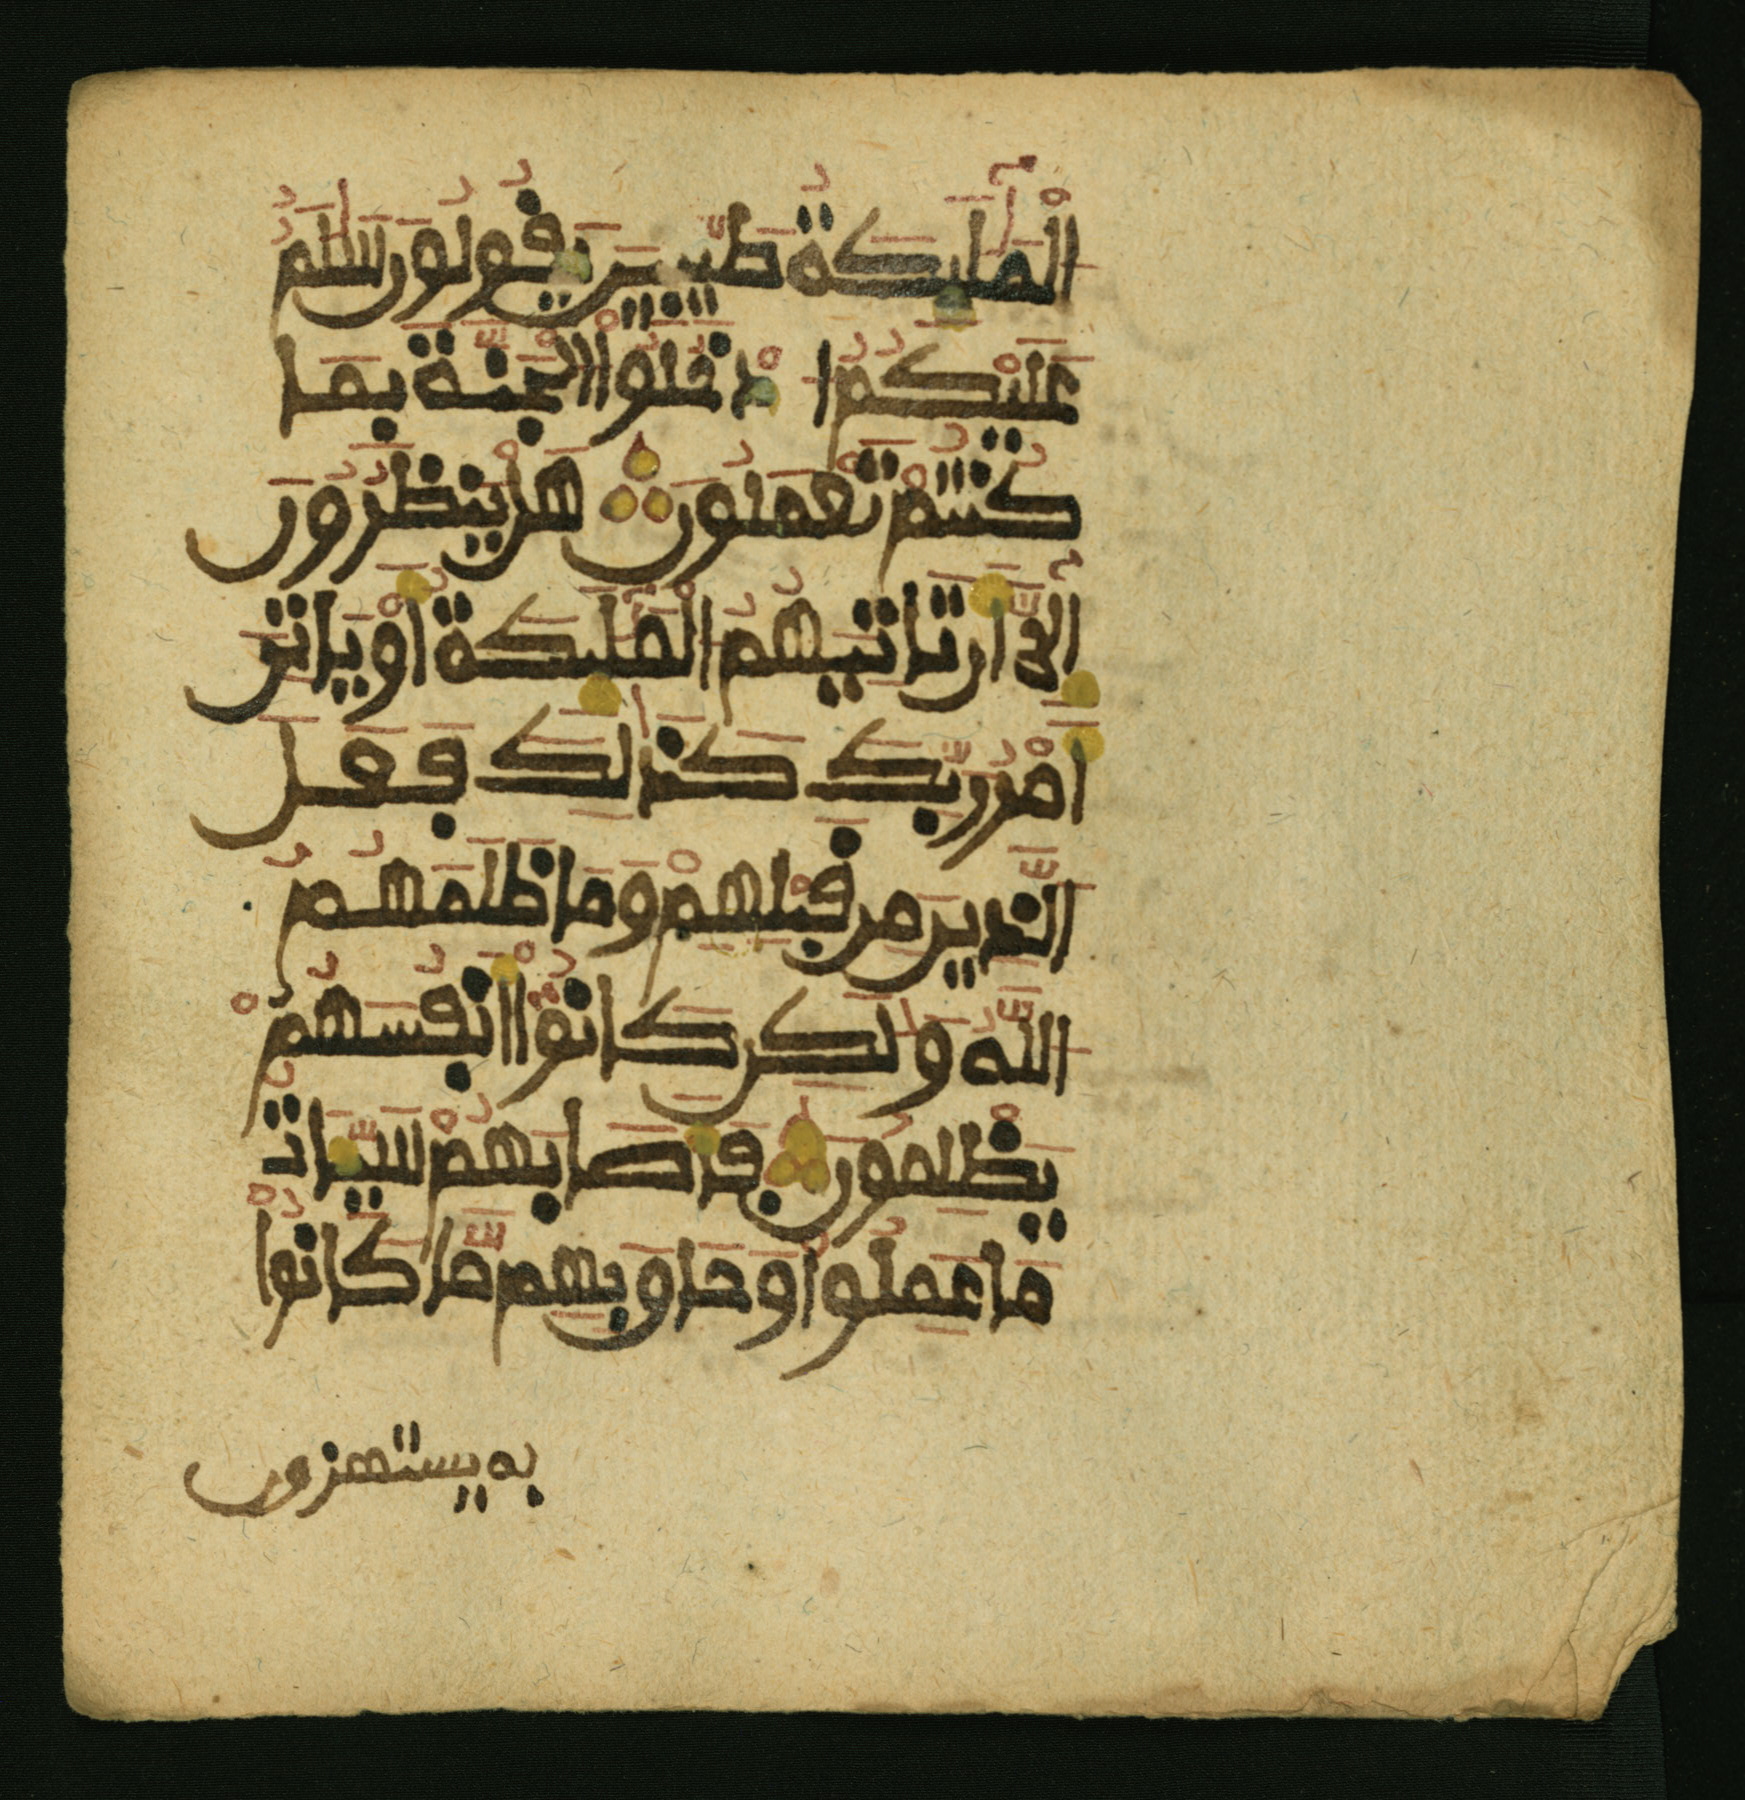 الْمَلَٰٓئِكَةُ طَيِّبِينَ يَقُولُونَ سَلَٰمٌ
عَلَيْكُمُ ادْخُلُوا الْجَنَّةَ بِمَا
كُنتُمْ تَعْمَلُونَ هَلْ يَنظُرُونَ
إِلَّا أَن تَاتِيَهُمُ الْمَلَٰٓئِكَةُ أَوْ يَاتِيَ
أَمْرُ رَبِّكَ كَذَٰلِكَ فَعَلَ
الَّذِينَ مِن قَبْلِهِمْ وَمَا ظَلَمَهُمُ
اللَّهُ وَلَٰكِن كَانُوا أَنفُسَهُمْ
يَظْلِمُونَ فَأَصَابَهُمْ سَيِّـَٔاتُ
مَا عَمِلُوا وَحَاقَ بِهِم مَّا كَانُوا
به يستهزون